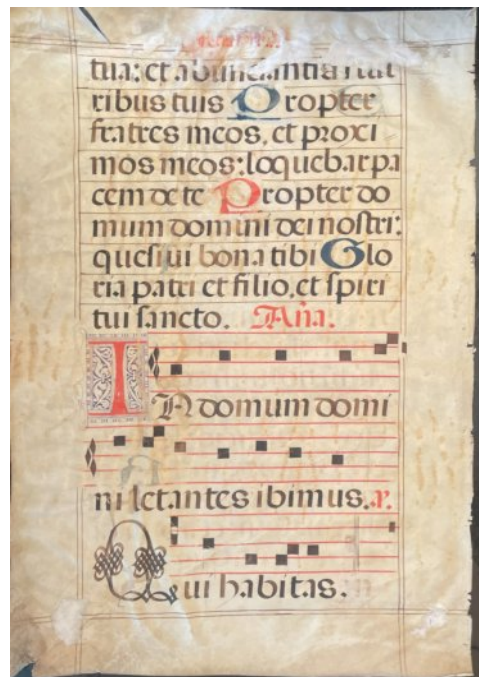 tua: et abundantia in tur
ribus tuis Propter
fratres meos, et proxi
mos meos: loquebar pa
cem de te Propter do
mum domini dei nostri:
quesiui bona tibi Glo
ria patri et filio, et spiri
tui sancto. Aña.
IN domum domi
ni letantes ibimus. a.
Qui habitas.